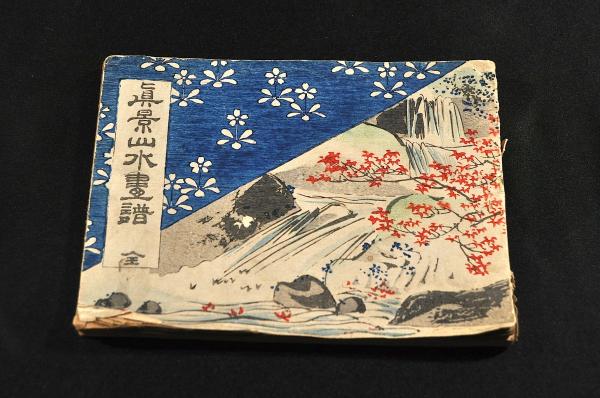 眞景山水畫譜 全